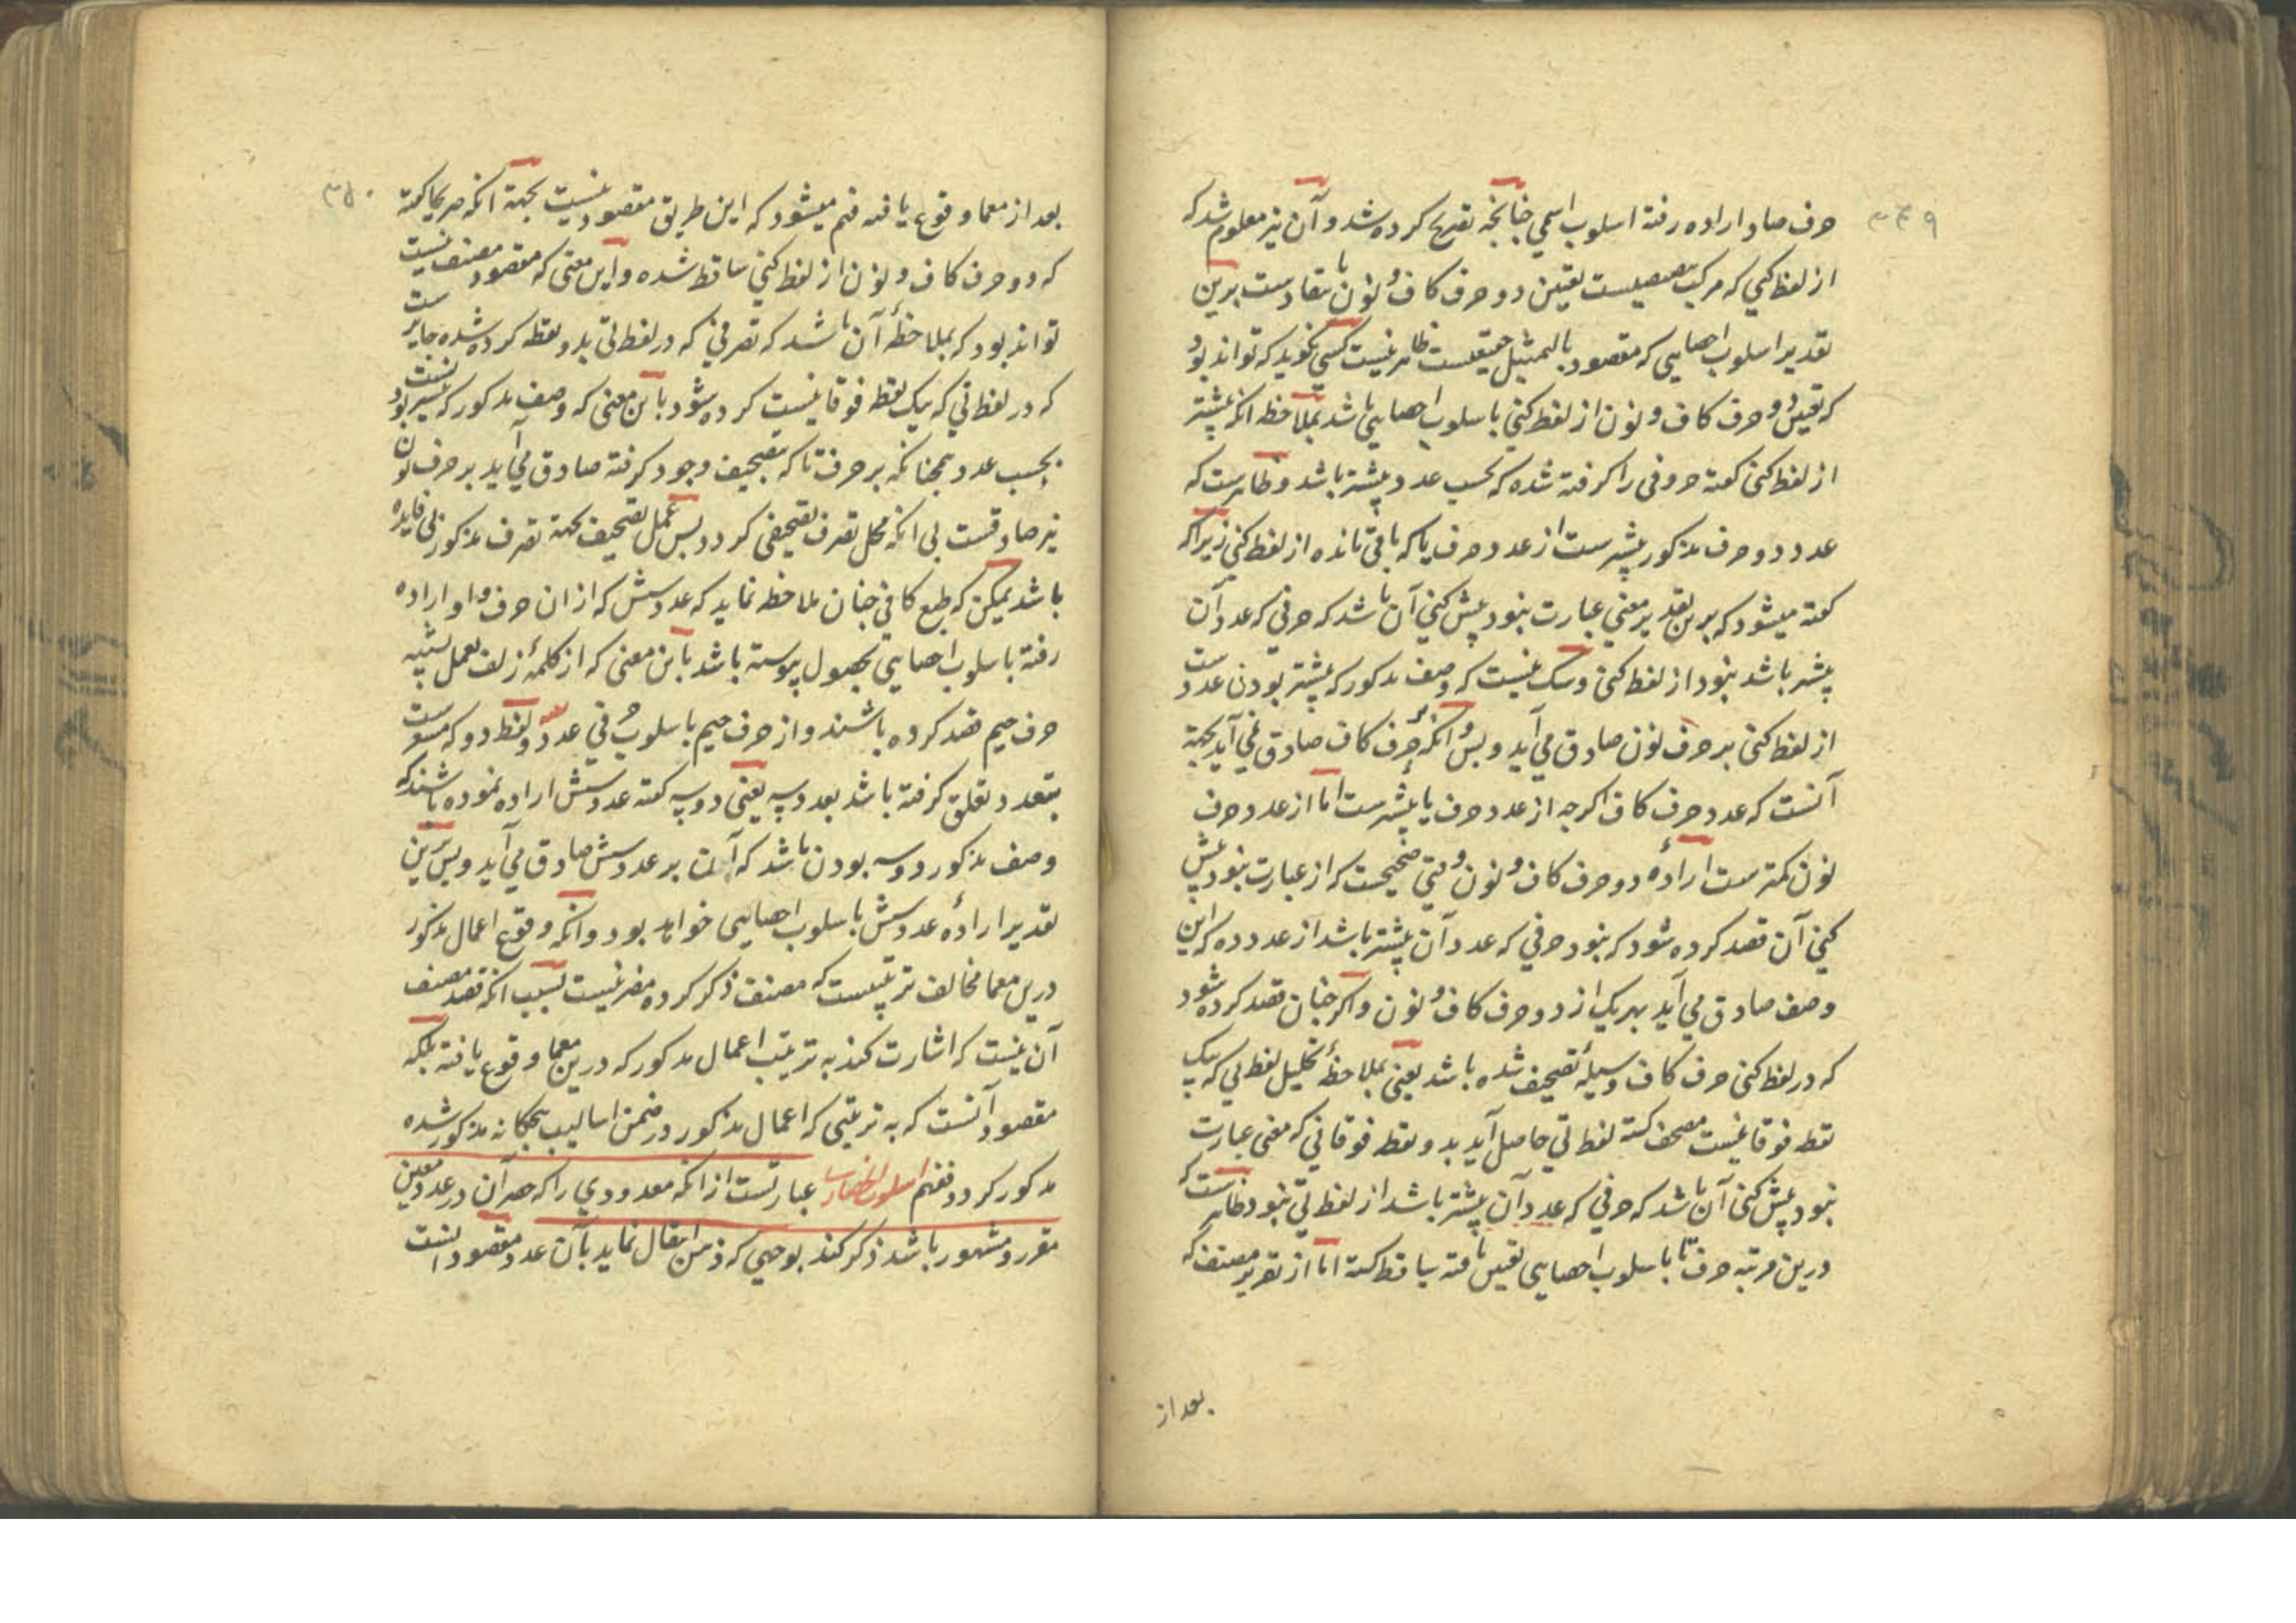 ۳۴۹
حرف صاد اراده رفته اسلوب اسمی چنانچه تصریح کرده شد و آن نیز معلوم شد که
از لفظ کنی که مرکب تعیین دو حرف کاف و نون با برین
تقدیر اسلوب احصایی که مقصود بالتمثیل حقیقیست ظاهر نیست کسی نگوید که تواند بود
که تعیین دو حرف کاف و نون از لفظ کنی باسلوب احصایی باشد بملاحظه انکه بیشتر
از لفظ کنی کفته حروفی را کرفته شده که بحسب عدد بیشتر باشد و ظاهرست که
عدد دو حرف مذکور بیشترست از عدد حرف یا که باقی مانده از لفظ کنی زیرا که
کفته میشود که برین تقدیر معنی عبارت بنود بیش کنی آن باشد که حرفی که عدد آن
بیشتر باشد بنود از لفظ کنی و شک نیست که وصف مذکور که بیشتر بودن عددست
از لفظ کنی بر حرف نون صادق می آید و بس و انکه بر حرف کاف صادق نمی آید بجهة
آنست که عدد حرف کاف اکرچه از عدد حرف یا بیشترست اما از عدد حرف
نون کمترست ارادهٔ دو حرف کاف و نون وقتی صحیحست که از عبارت بنود بیش
کنی آن قصد کرده شود که بنود حرفی که عدد آن بیشتر باشد از عدد ده که این
وصف صادق می آید بهر یک از دو حرف کاف و نون و اکر چنان قصد کرده شود
که در لفظ کنی حرف کاف وسیلهٔ تصحیف شده باشد یعنی بملاحظهٔ تحلیل لفظ نی که یک
نقط فوقانیست مصحف کشته لفظ تی حاصل آید بدو نقط فوقانی که معنی عبارت
بنود بیش کنی آن باشد که حرفی که عدد آن بیشتر باشد از لفظ تی بنود ظاهرست که
درین مرتبه حرف تا باسلوب احصایی تعیین یافته ساقط کشته اما از تقریر مصنف که
بعد از
۳۵۰
بعد از معما وقوع یافته فهم میشود که این طریق مقصود نیست بجهة انکه صریحا کفته
که دو حرف کاف و نون از لفظ کنی ساقط شده و این معنی که مقصود مصنف نیست
تواند بود که بملاحظهٔ آن باشد که تصرفی که در لفظ تی بدو نقطه کرده شده جایزست
که در لفظ نی که یک نقط فوقانیست کرده شود باین معنی که وصف مذکور که بیشتر بودنست
بحسب عدد همچنانکه بر حرف تا که بتصحیف وجود کرفته صادق می آید بر حرف نون
نیز صادقست بی انکه محل تصرف تصحیفی کردد پس عمل تصحیف بجهة تصرف مذکور بی فایده
باشد یمکن که طبع کافی چنان ملاحظه نماید که عدد شش که از ان حرف واو اراده
رفته باسلوب احصایی بحصول پیوسته باشد باین معنی که از کلمهٔ زلف بعمل تشبیه
حرف جیم قصد کرده باشند و از حرف جیم باسلوب حرفی عدد و لفظ دو که مشعرست
بتعدد تعلق کرفته باشد بعدد سه یعنی دو سه کفته عدد شش اراده نموده باشند که
وصف مذکور دو سه بودن باشد که آن بر عدد شش صادق می آید و بس برین
تقدیر ارادهٔ عدد شش باسلوب احصایی خواهد بود و انکه وقوع اعمال مذکور
درین معما مخالف ترتیبست که مصنف ذکر کرده مضر نیست بسبب انکه قصد مصنف
آن نیست که اشارت کند به ترتیب اعمال مذکور که درین معما وقوع یافته بلکه
مقصود آنست که به ترتیبی که اعمال مذکور در ضمن اسالیب پنجکانه مذکور شده
مذکور کردد فهم اسلوب انحصاریست عبارتست از انکه معدودی را که حصر آن در عدد معین
مقرر و مشهور باشد ذکر کند بوجهی که ذهن انتقال نماید بآن عدد و مقصود انست